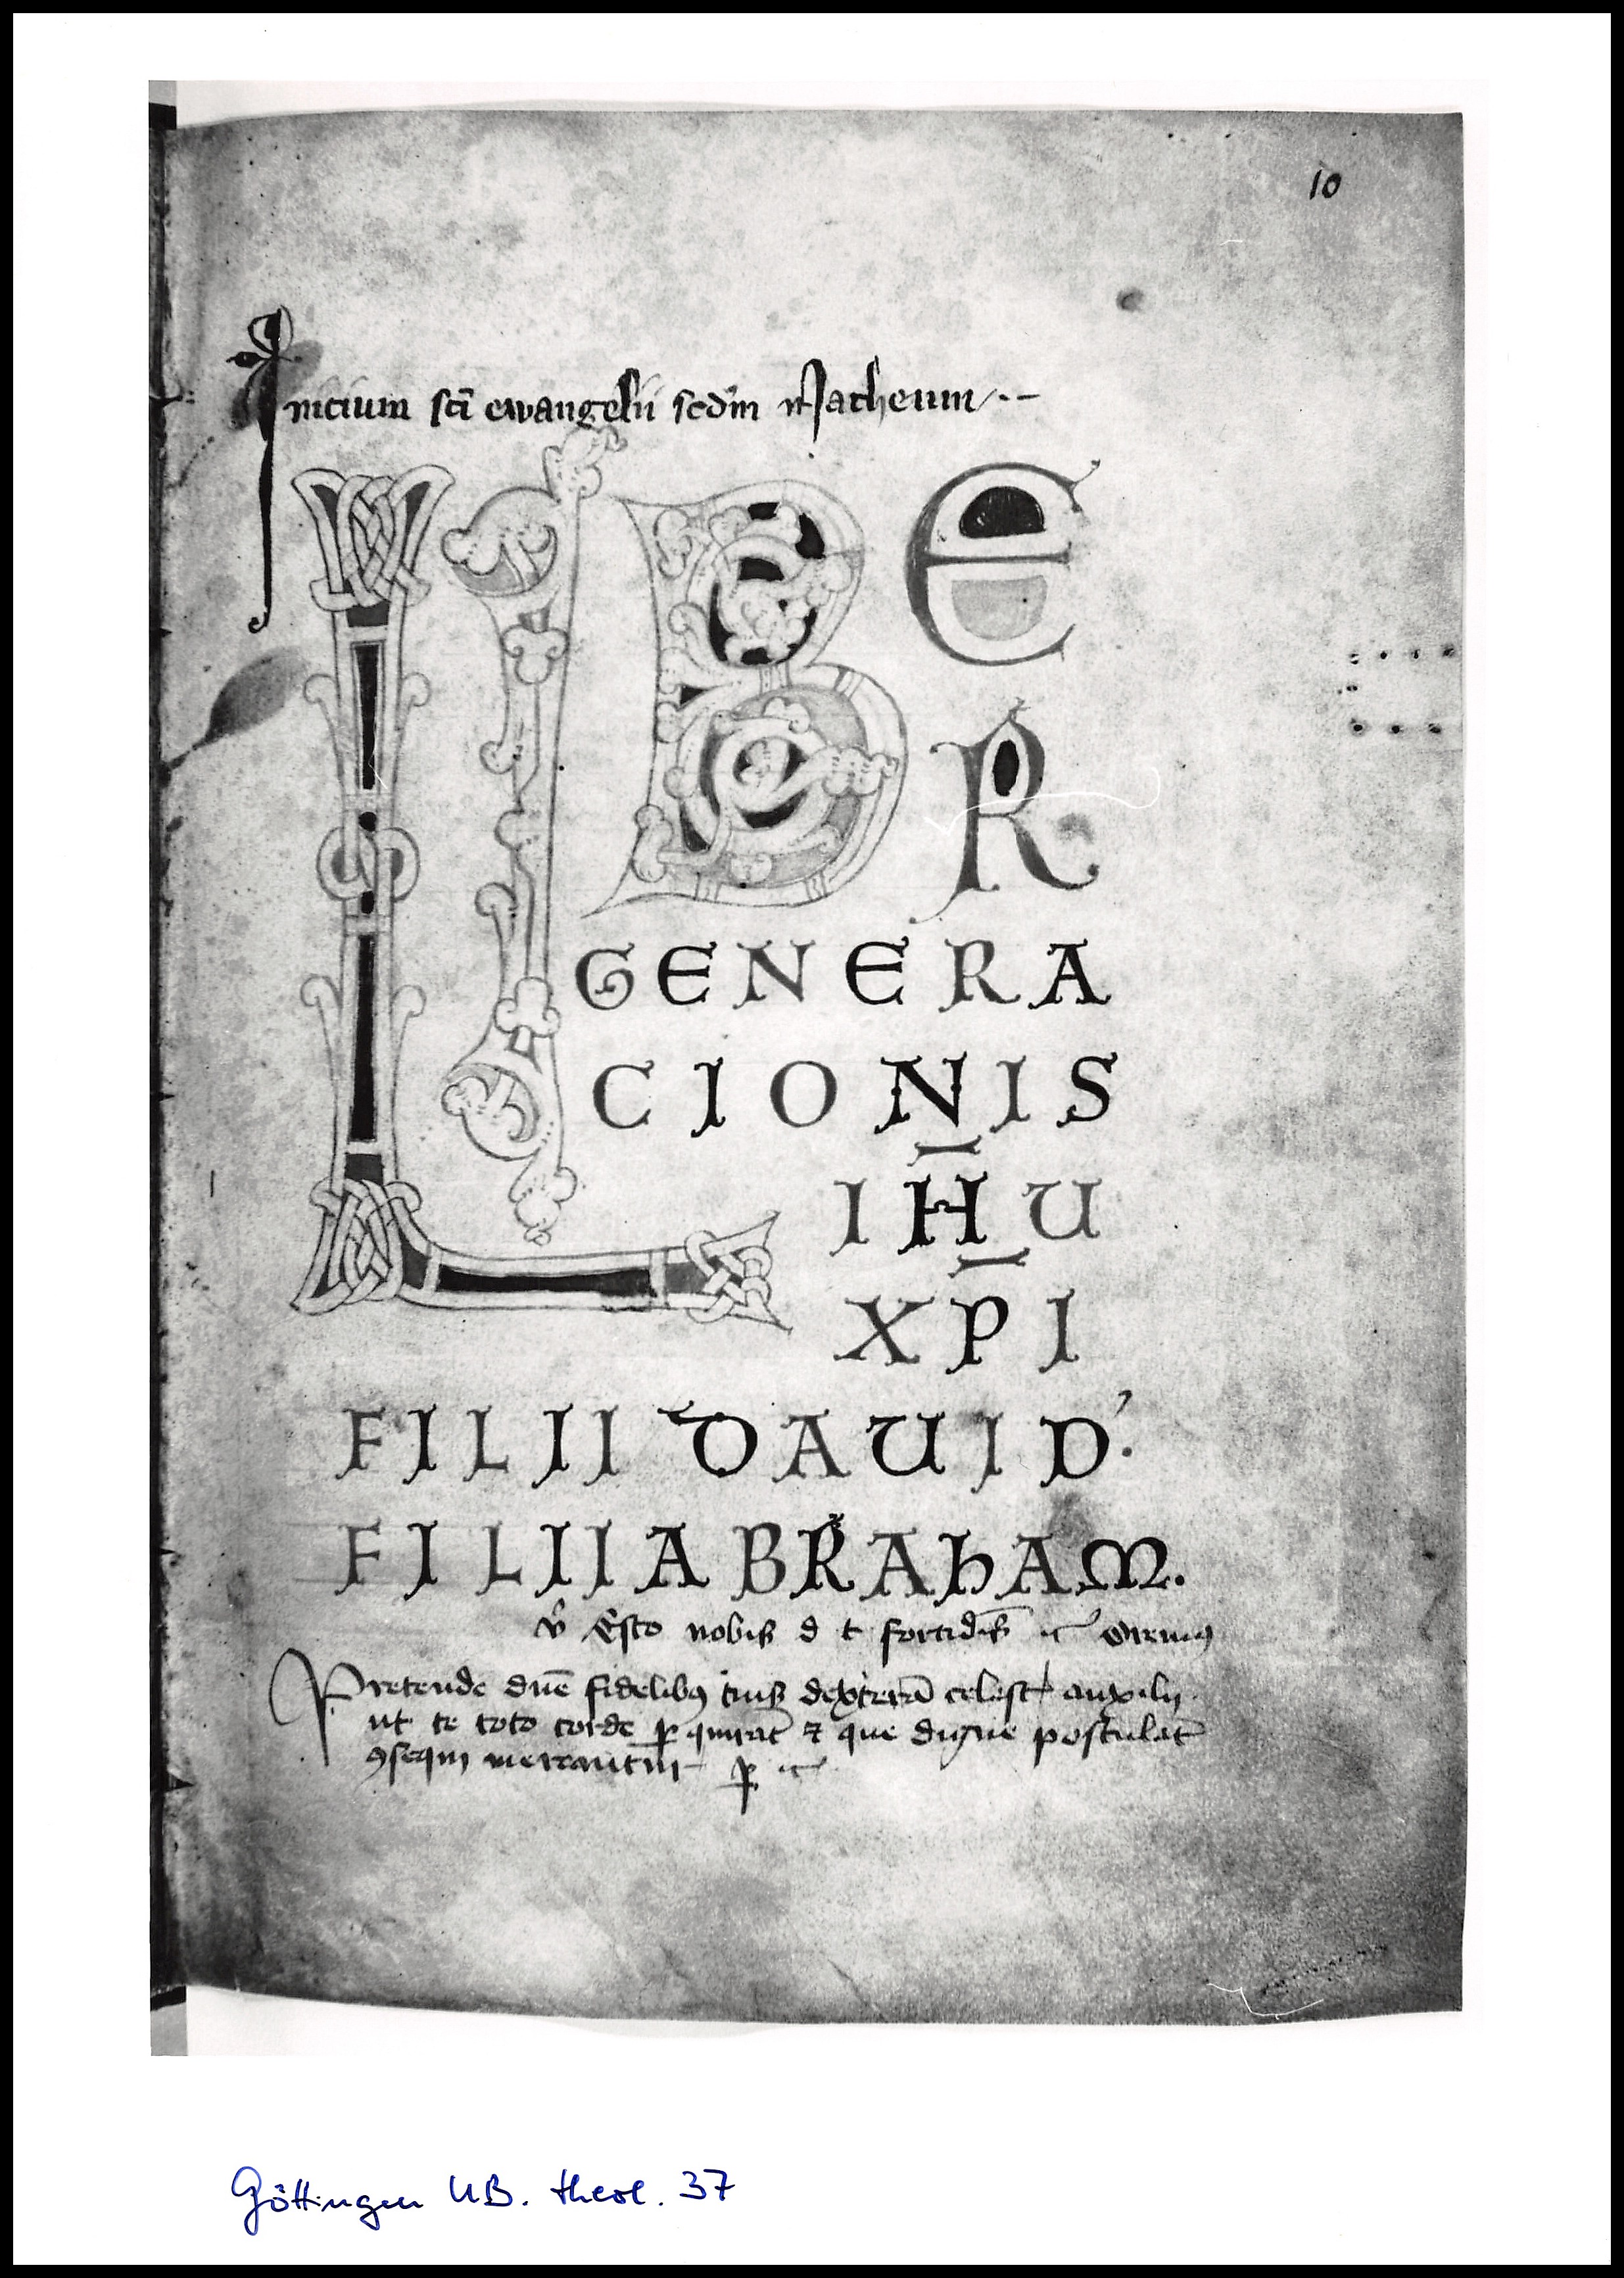 10
Inicium sci̅ ewangelii scdm̅ Matheum
LIBE
R
GENERA
CIONIS
IH̅U
XP̅I
FILII DAUID.
FILII ABRAHAM.
Esto nobis d t
Pretende dne̅ fidelibꝰ tuis dexterā celest auxilii
ut te toto corde ꝑquirāt ⁊ que digne postulāt
ꝯsequi mereantur
Göttingen UB. theol. 37